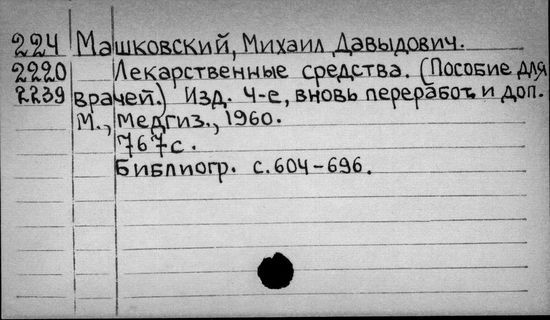 224 Машковский, Михаил Давыдович.
2220 Лекарственные средства. (Пособие для
2239 врачей.) Изд. 4-е, вновь переработ. и доп.
М., Медгиз., 1960.
767 с.
Библиогр. с. 604-696.